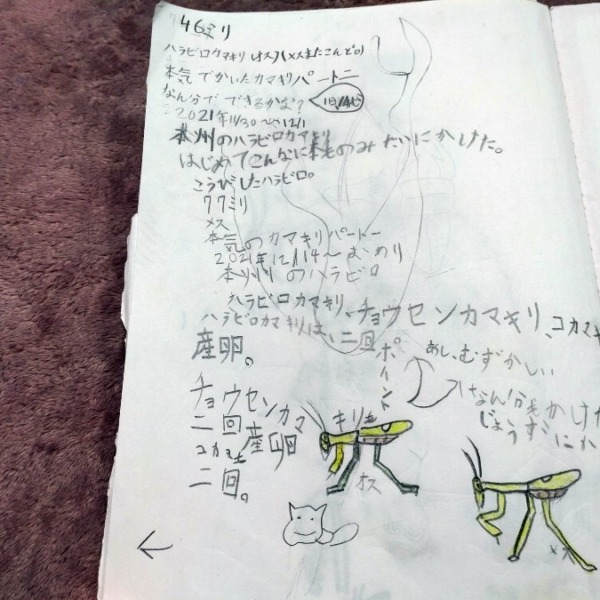 46ミリ
ハラビロカマキリ(オス)(メスまたこんど。)
本気でかいたカマキリパートニ
なん分でできるかな?
1日/4じ
2021年11/30〜12/1
本州のハラビロカマキリ
はじめてこんなに本もののみたいにかけた。
こうびしたハラビロ。
77ミリ
メス
本気のカマキリパートー
2021年12/14〜おわり
本州のハラビロ
ハラビロカマキリ、チョウセンカマキリ、コカマキ
ハラビロカマキリは、二回
産卵。
ポイント
あし、むずかしい
なん分もかけ
じょうずにか
チョウセンカマキリも
二回産卵
コカマも
二回。
オス
メス